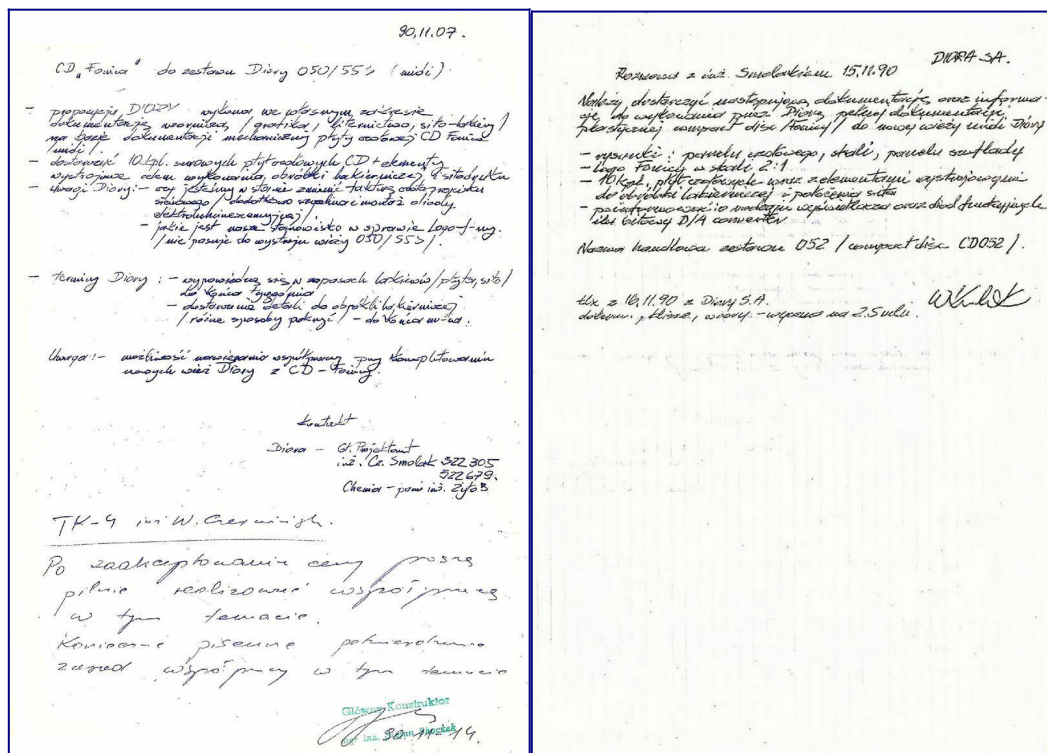 90.11.07.
CD „Fonica" do zestawu Diory 050/55> (midi).
- propozycja DIORY - wykona we własnym zakresie
dokumentację wzorniczą / grafika, liternictwo, sito-lakiery /
na bazie dokumentacji mechanicznej płyty czołowej CD Fonica
/midi/.
- dostarczyć 10 kpl. surowych płyt czołowych CD + elementy
wystrojowe celem wykonania obróbki lakierniczej i sitodruku
- Uwagi Diory: - czy jesteśmy w stanie zmienić
/ dodatkowo i montaż diody
elektroluminescencyjnej /
- jakie jest nasze stanowisko w sprawie Logo f-my.
/ nie pasuje do wystroju wieży 050/55> /.
- terminy Diory: - wypowiedzą się w zapasach lakierów / płyta, sito /
do końca tygodnia
- dostarczenie detali do obróbki lakierniczej
/ różne sposoby pokryć / - do końca
Uwaga: - możliwość nawiązania współpracy przy kompletowaniu
nowych wież Diory z CD - Fonicy.
Kontakt
Diora - Gł. Projektant
inż. Cz. Smolak 522 305
522 679.
Chemia - pani inż.
TK-4 inż W.
Po zaakceptowaniu ceny proszę
pilnie realizować współpracę
w tym temacie.
Konieczne pisemne potwierdzenie
zasad współpracy w tym temacie
Główny Konstruktor
mgr inż.
90-11-14.
DIORA SA.
Rozmowa z inż. Smolakiem 15.11.90
Należy dostarczyć następującą dokumentację oraz informa-
cje do wykonania przez Diorę pełnej dokumentacji
plastycznej compact disc Fonicy / do nowej wieży midi Diory
- rysunki: panelu czołowego, skali, panelu szuflady
- logo Fonicy w skali 2:1.
- 10 kpl. płyt czołowych wraz z elementami wystrojowymi
do obróbki lakierniczej i położenia sita
- poinformować o wyświetlacza oraz diod funkcyjnych
bitowy D/A converter
Nazwa handlowa zestawu 052 / compact disc CD052 /.
tlx z 16.11.90 z Diory S.A.
dokum., klisze, wzory -